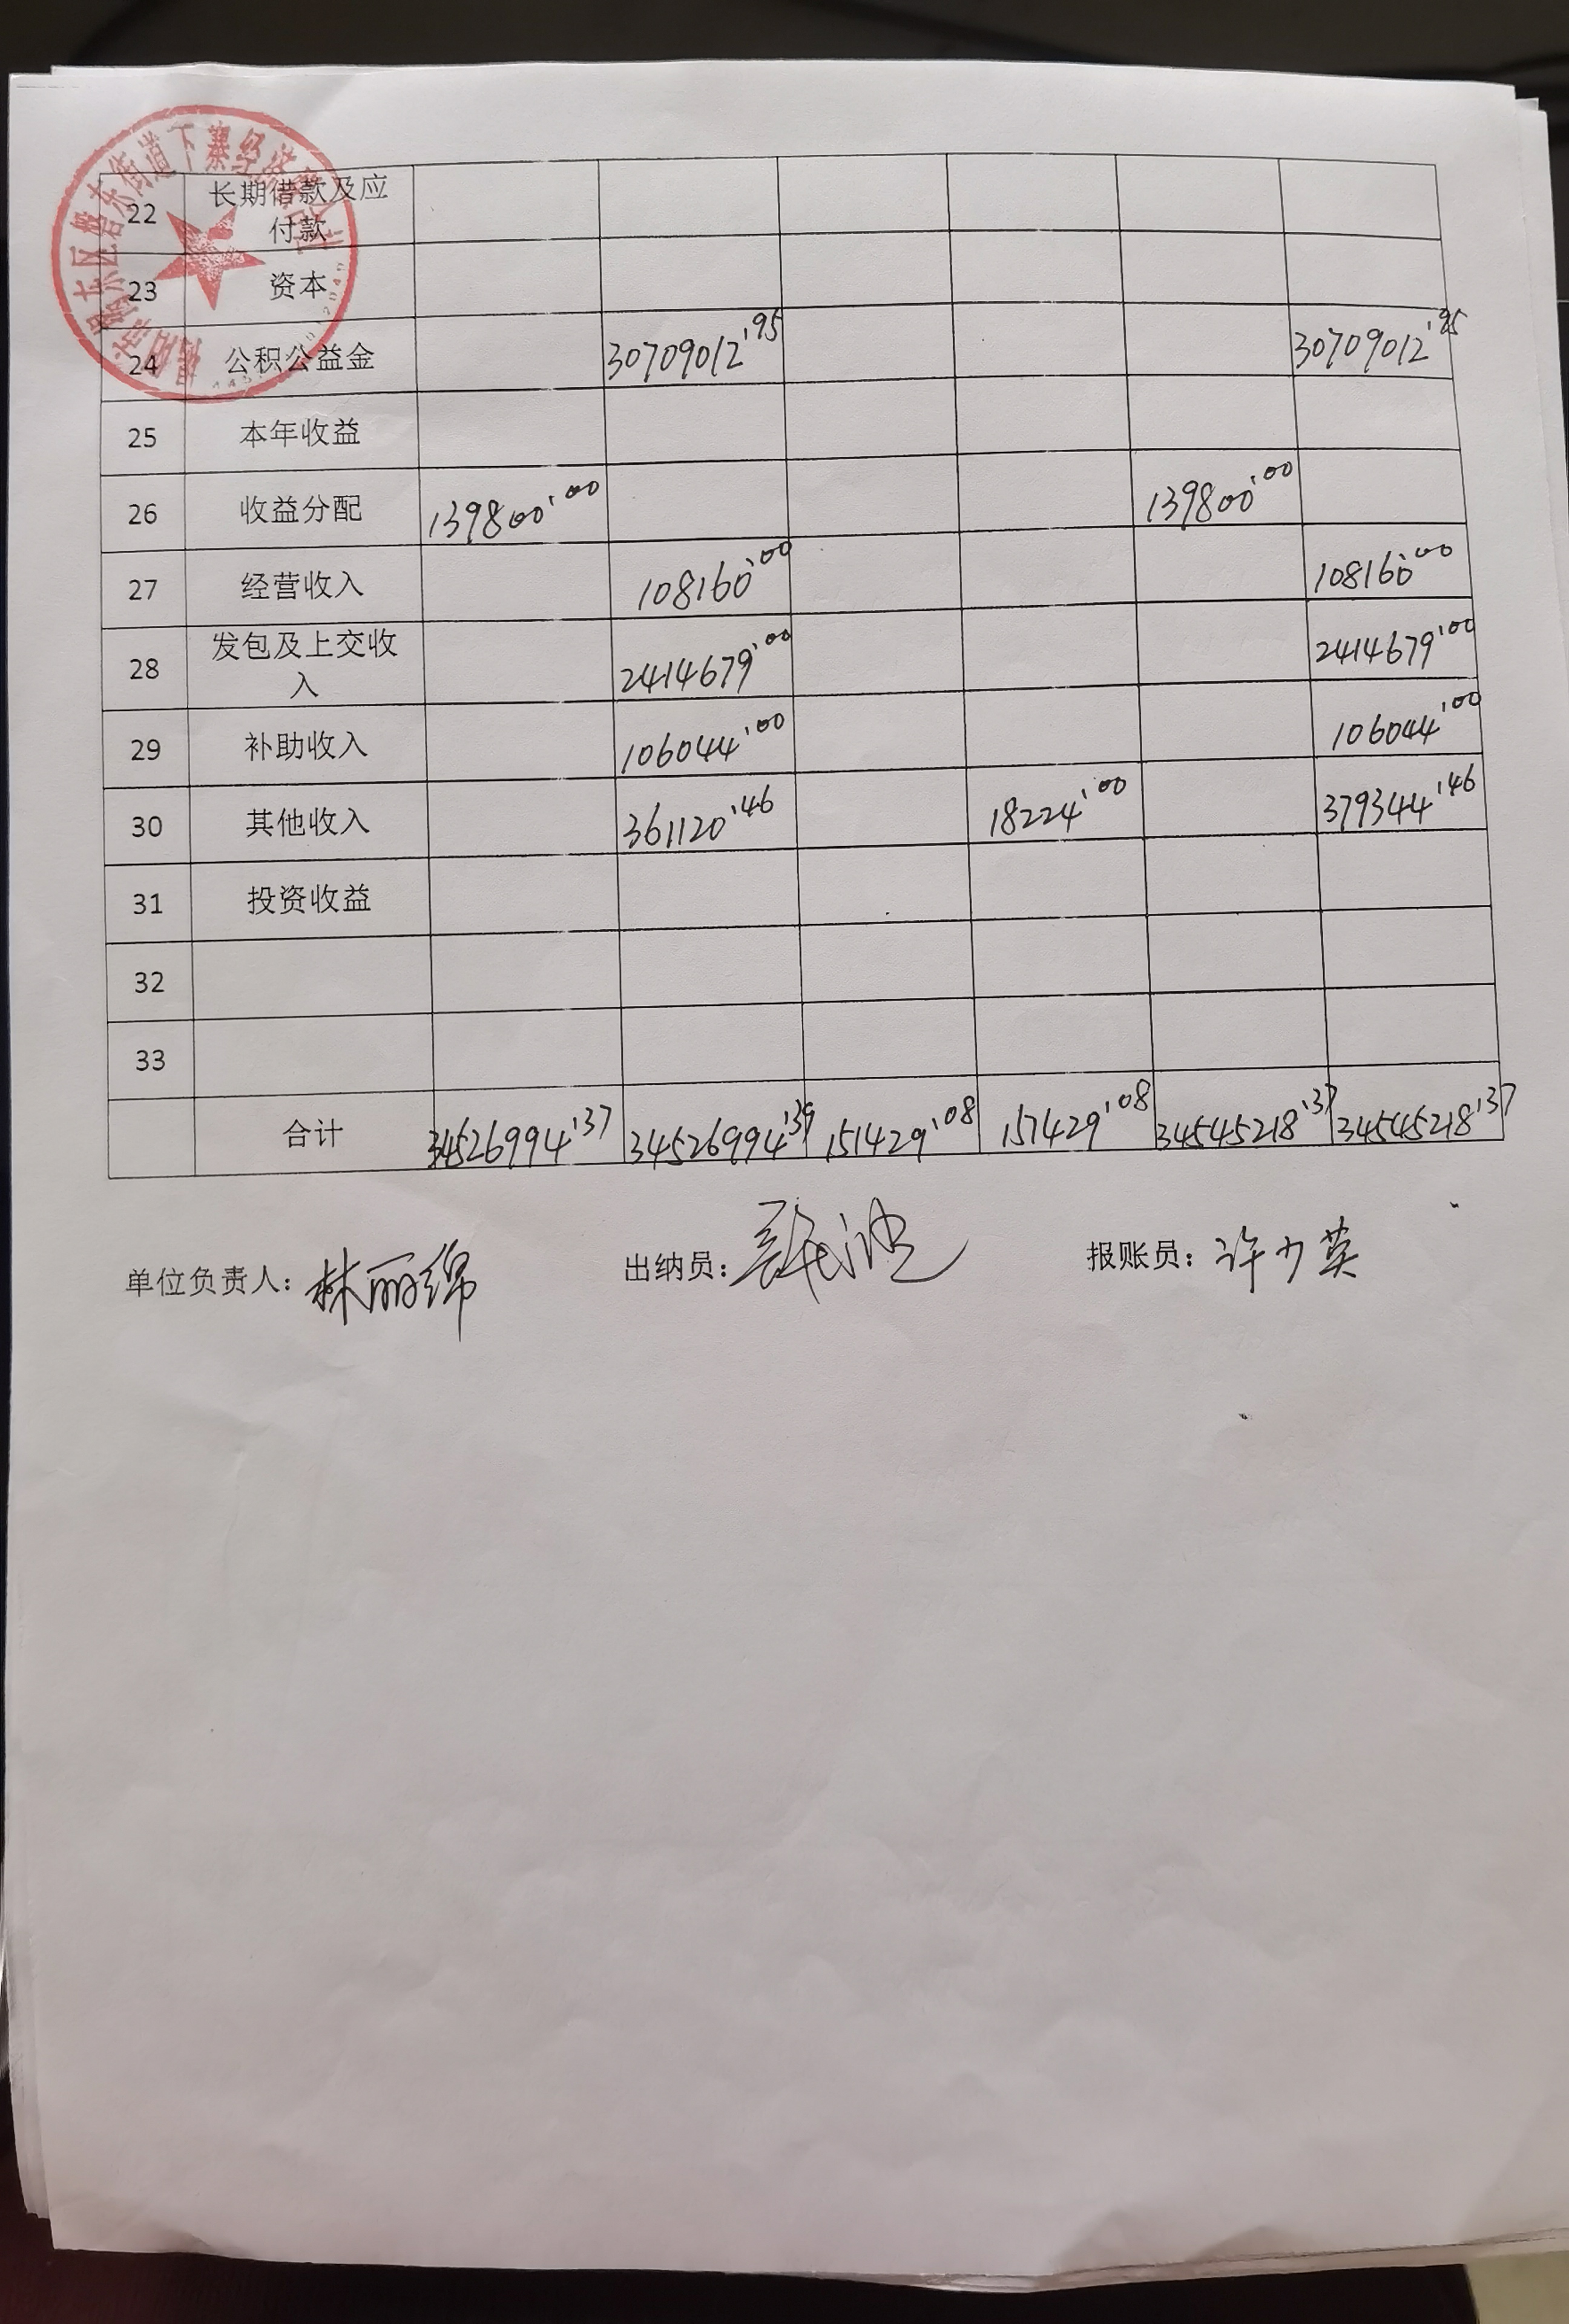 22 长期借款及应
付款
23 资本
24 公积公益金 30709012'95 30709012'95
25 本年收益
26 收益分配 139800'00 139800'00
27 经营收入 108160'00 108160'00
28 发包及上交收
入 2414679'00 2414679'00
29 补助收入 106044'00 106044'00
30 其他收入 361120'46 18224'00 379344'46
31 投资收益
32
33
合计 34526994'37 34526994'37 151429'08 151429'08 34545218'37 34545218'37
单位负责人：林丽绵 出纳员： 报账员：许少英
东区磐东街道下寨经济